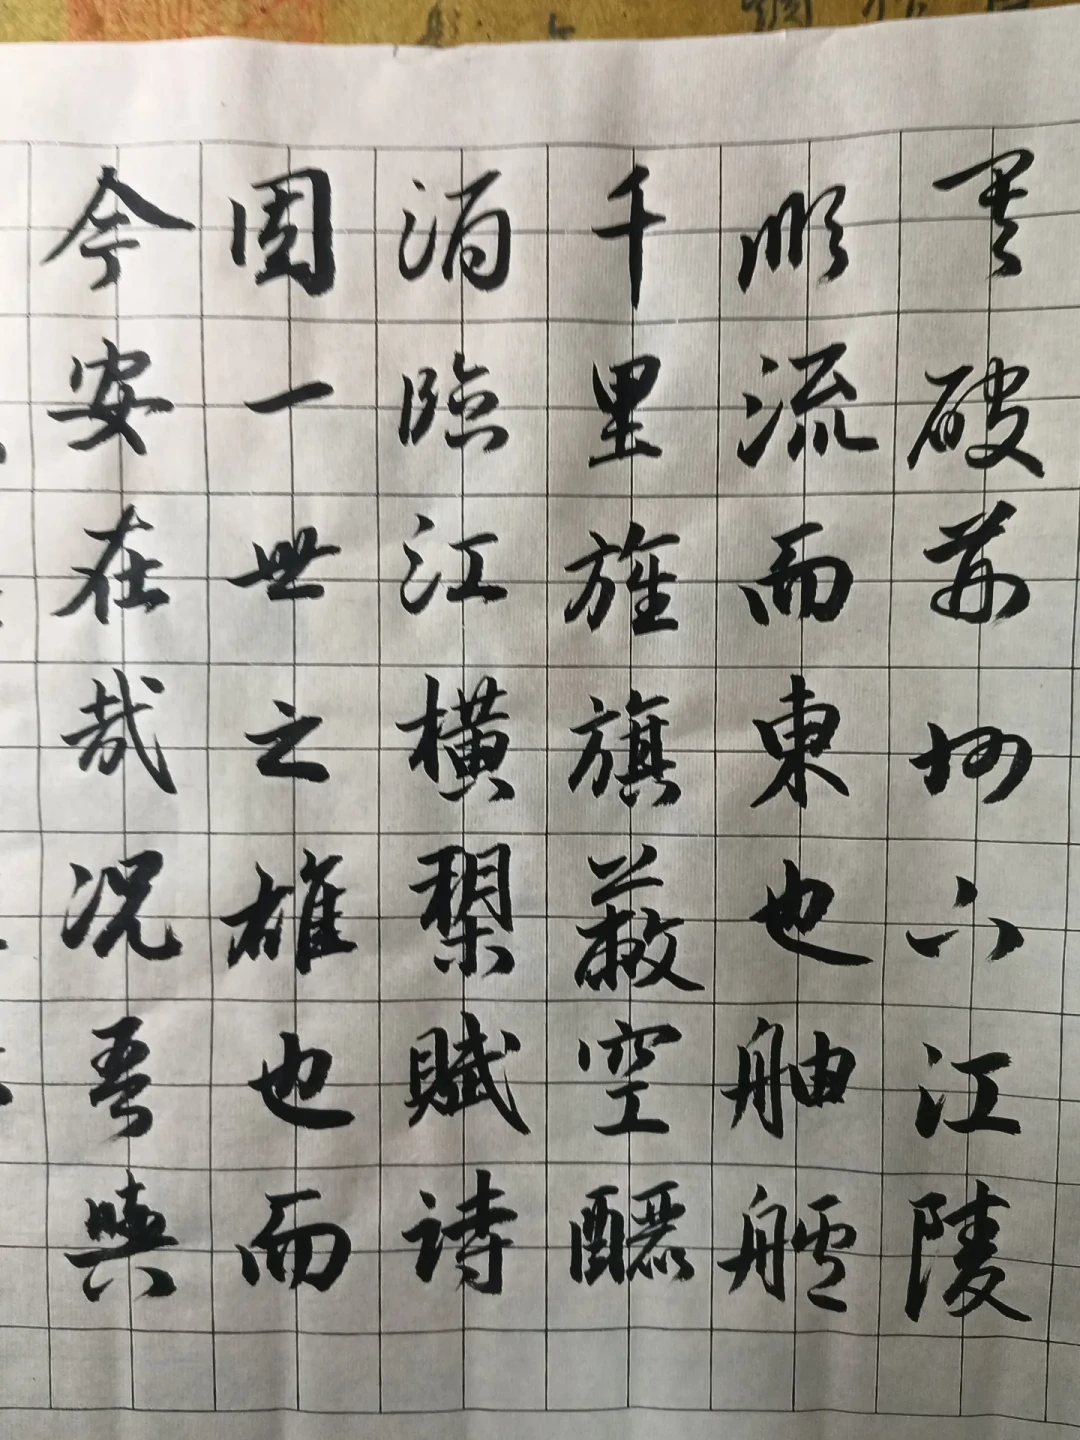 其破荊州下江陵
順流而東也舳艫
千里旌旗蔽空釃
酒臨江橫槊賦詩
固一世之雄也而
今安在哉况吾與